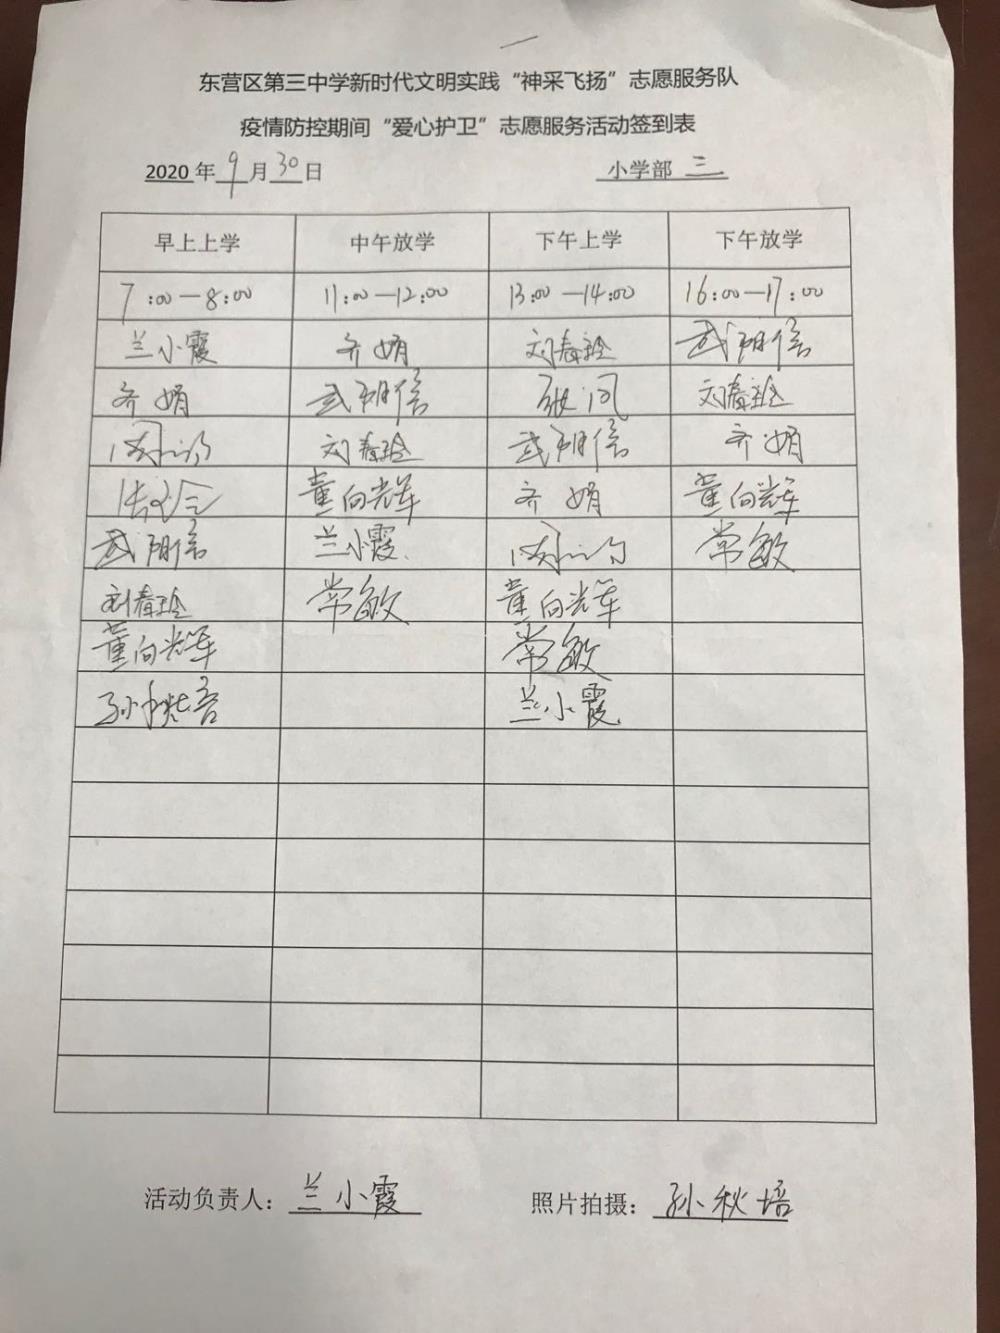 东营区第三中学新时代文明实践“神采飞扬”志愿服务队
疫情防控期间“爱心护卫”志愿服务活动签到表
2020年9月30日 小学部 三
早上上学 中午放学 下午上学 下午放学
7:00—8:00 11:00—12:00 13:00—14:00 16:00—17:00
兰小霞 齐娟 刘春玲 武朋信
齐娟 武朋信 刘春玲
刘春玲 武朋信 齐娟
董向辉 齐娟 董向辉
武朋信 兰小霞 常敏
刘春玲 常敏 董向辉
董向辉 常敏
孙秋培 兰小霞
活动负责人：兰小霞 照片拍摄：孙秋培